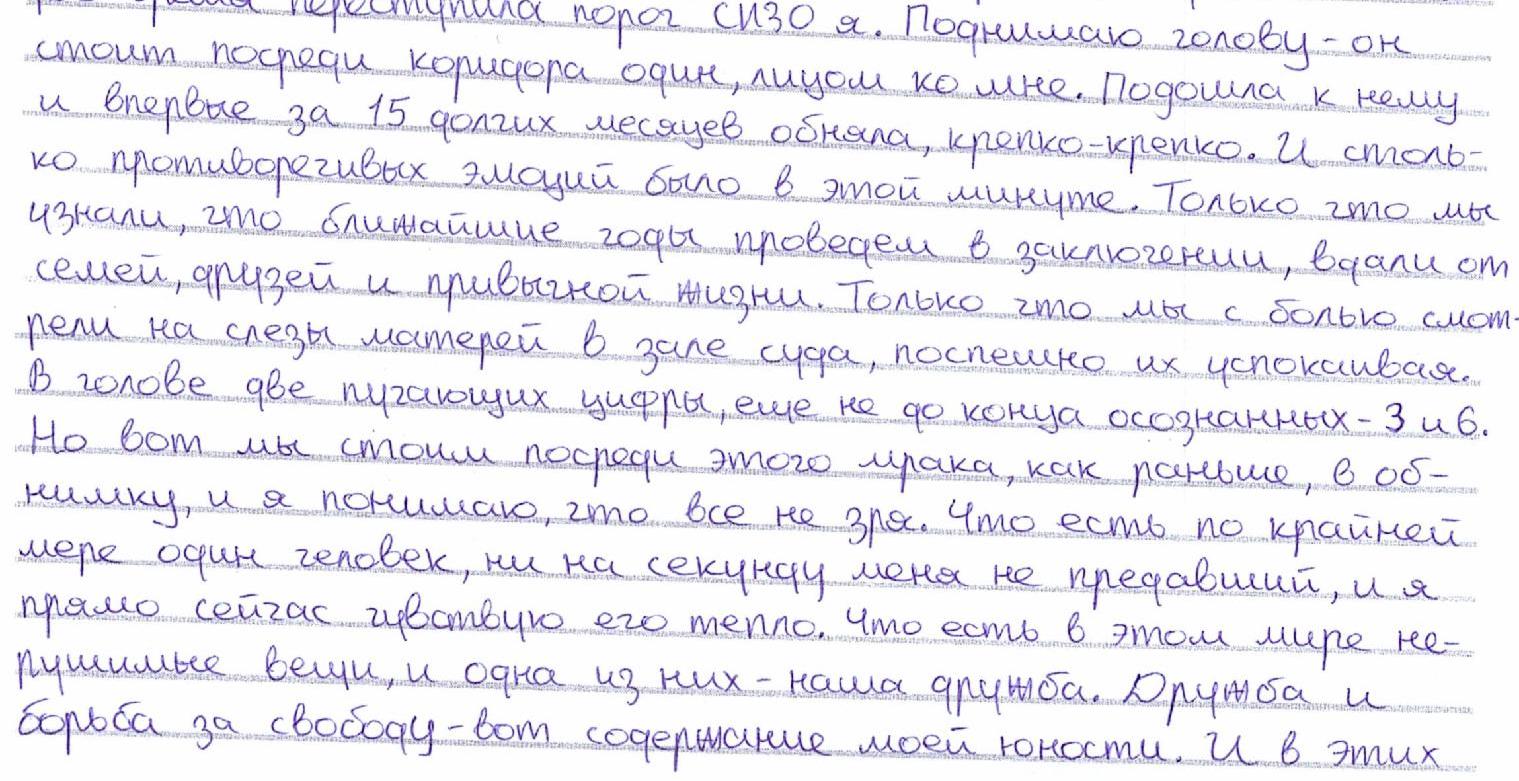 переступила порог СИЗО я. Поднимаю голову - он
стоит посреди коридора один, лицом ко мне. Подошла к нему
и впервые за 15 долгих месяцев обняла, крепко-крепко. И столь-
ко противоречивых эмоций было в этой минуте. Только что мы
узнали, что ближайшие годы проведем в заключении, вдали от
семей, друзей и привычной жизни. Только что мы с болью смот-
рели на слезы матерей в зале суда, поспешно их успокаивая.
В голове две пугающих цифры, еще не до конца осознанных - 3 и 6.
Но вот мы стоим посреди этого мрака, как раньше, в об-
нимку, и я понимаю, что все не зря. Что есть по крайней
мере один человек, ни на секунду меня не предавший, и я
прямо сейчас чувствую его тепло. Что есть в этом мире не-
рушимые вещи, и одна из них - наша дружба. Дружба и
борьба за свободу - вот содержание моей юности. И в этих